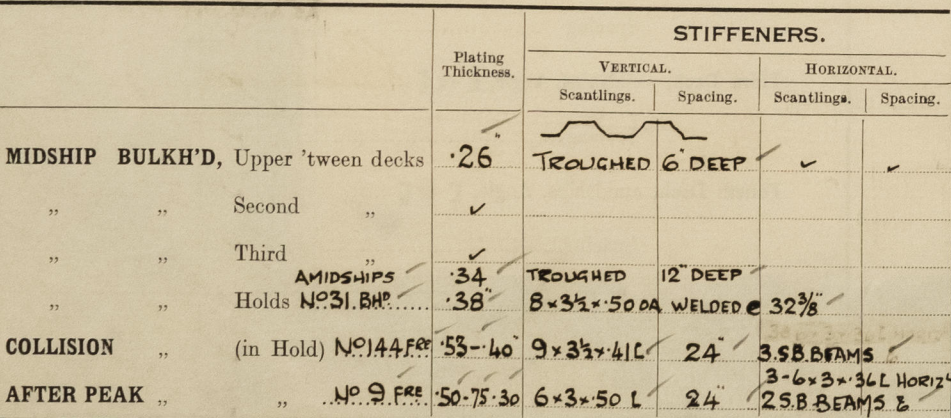 STIFFENERS.
Plating Thickness. VERTICAL. HORIZONTAL.
Scantlings. Spacing. Scantlings. Spacing.
MIDSHIP BULKH'D, Upper 'tween decks ·26" TROUGHED 6" DEEP ✓ ✓
„ „ Second „ ✓
„ „ Third „ ✓
AMIDSHIPS ·34 TROUGHED 12" DEEP
„ „ Holds No 31. BHD. ·38" 8 × 3½ × ·50 OA WELDED @ 32⅜"
COLLISION „ (in Hold) No 144 FRE ·53-·40" 9 × 3½ × ·41 L 24" 3.S.B. BEAMS
3-6×3×·36 L HORIZ
AFTER PEAK „ „ No 9 FRE ·50-75-30 6 × 3 × ·50 L 24" 2 S.B BEAMS &